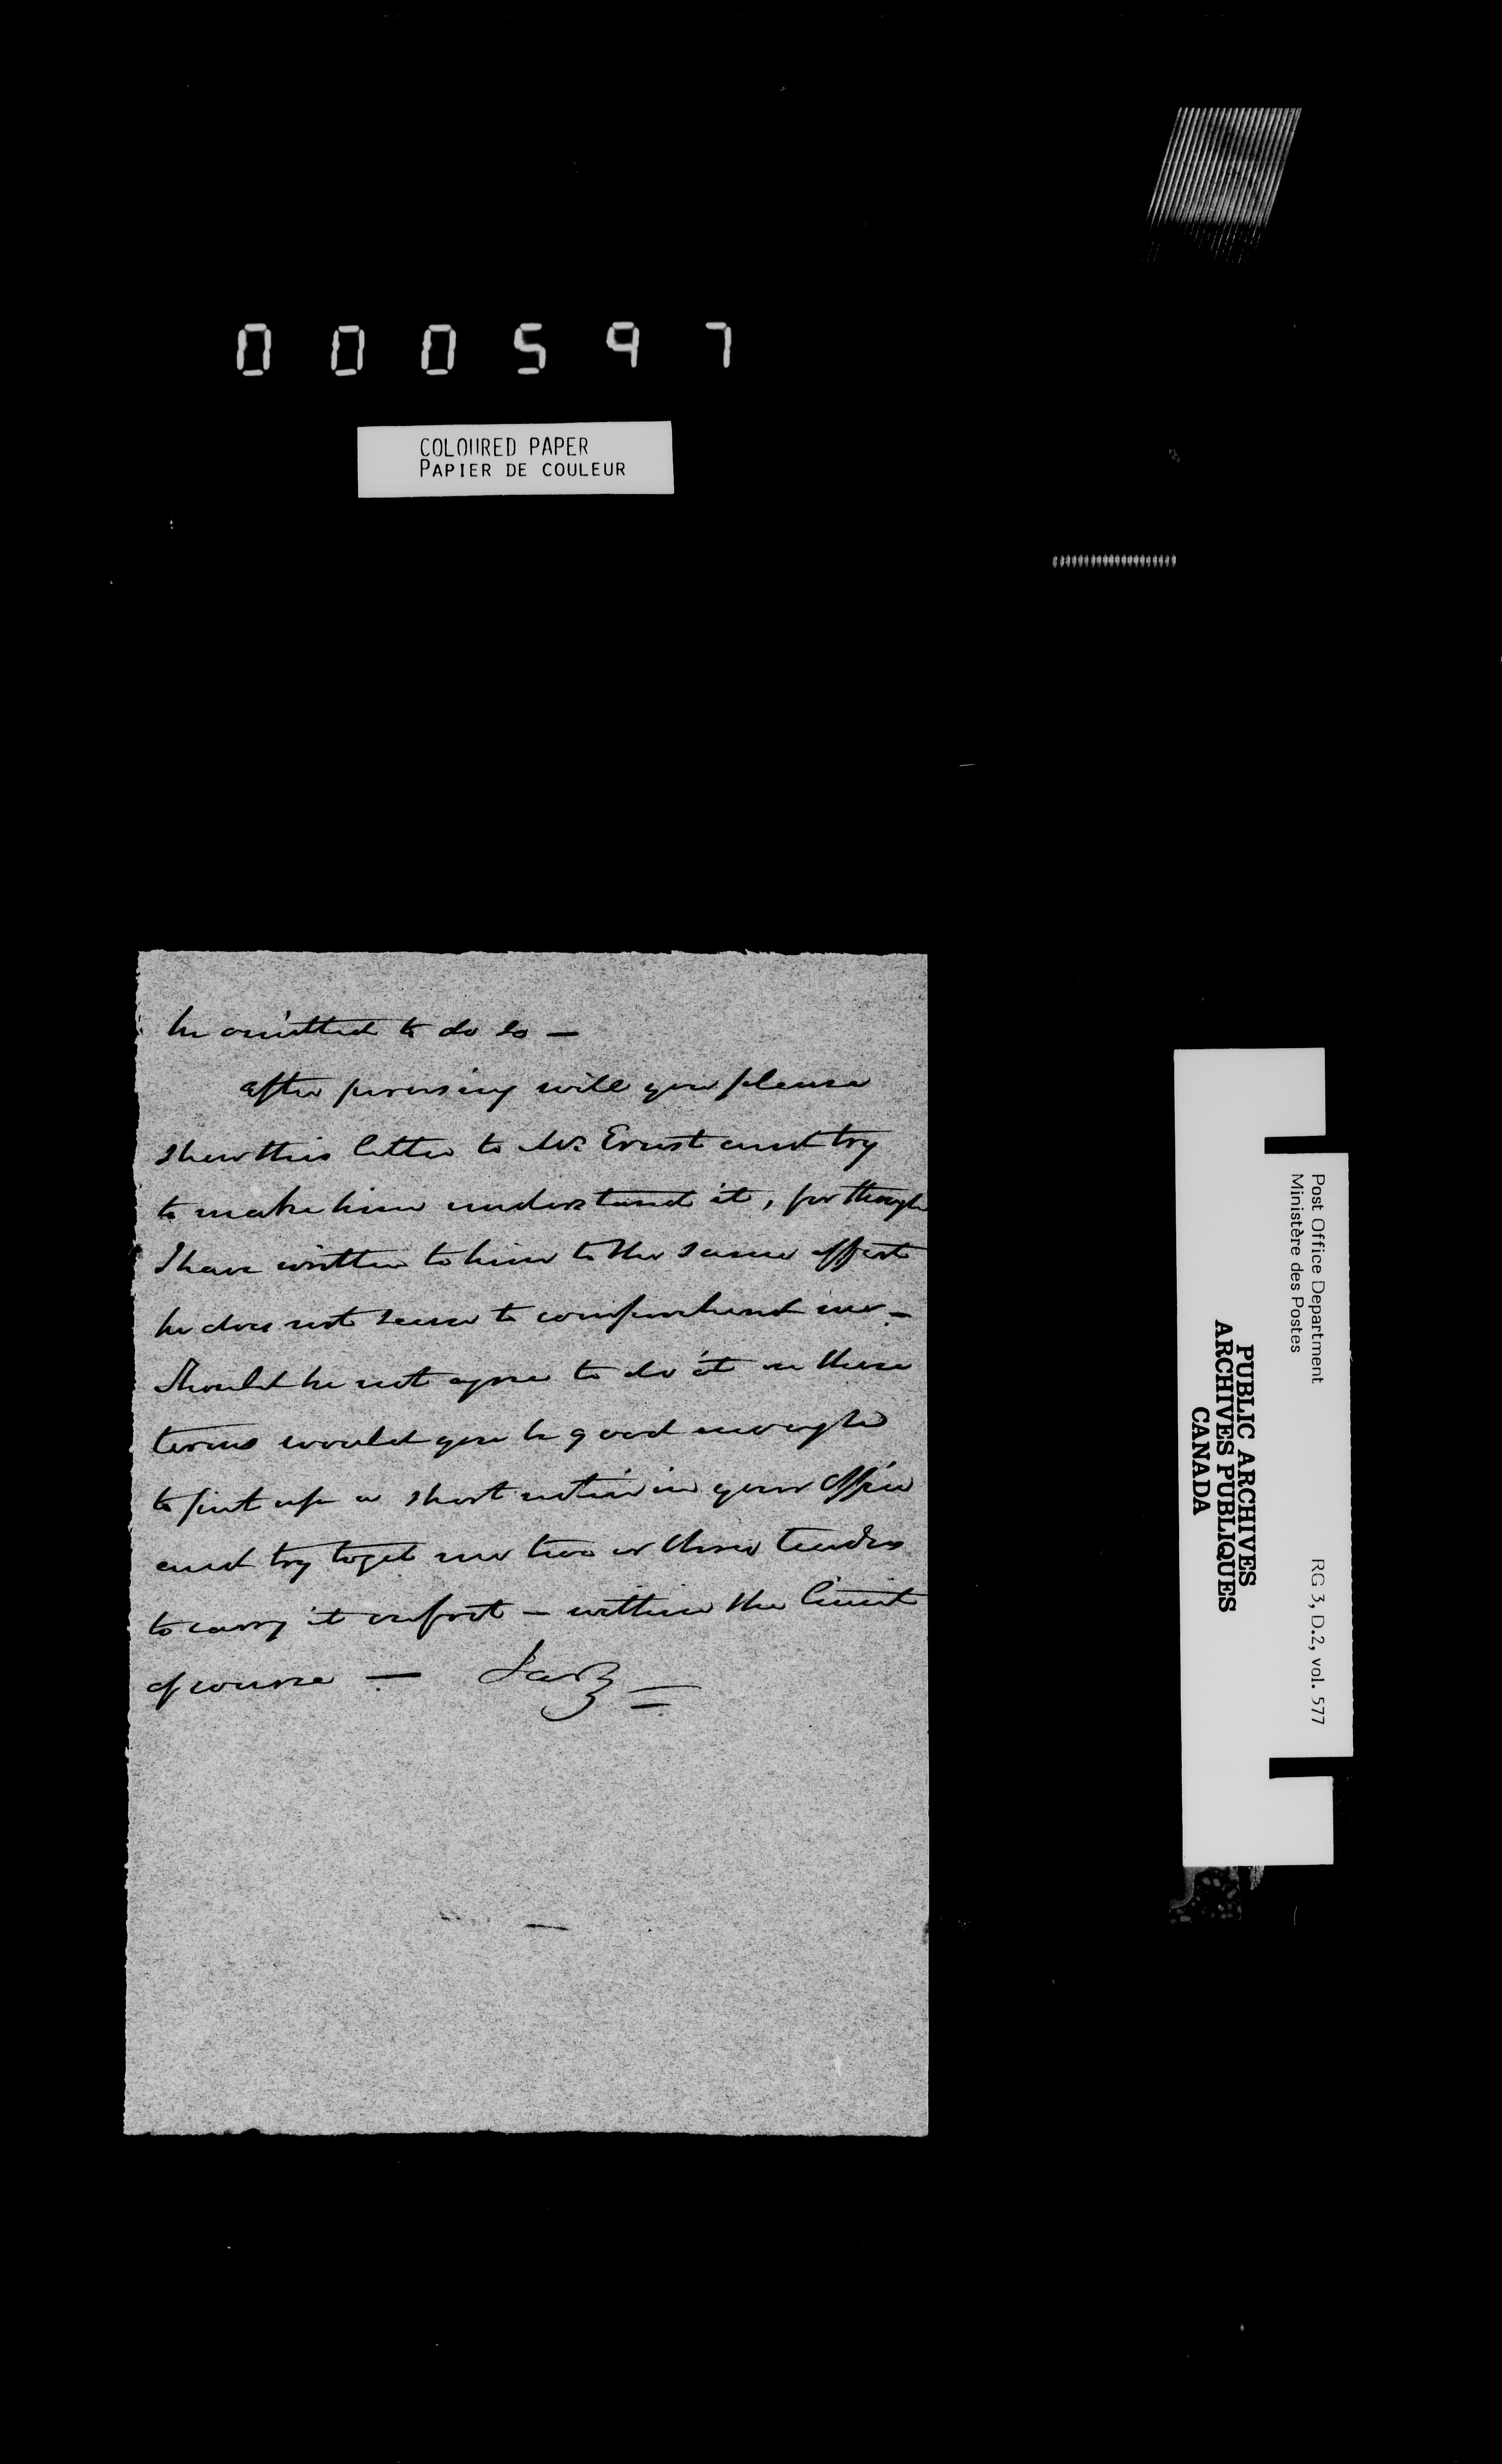 000597
COLOURED PAPER
PAPIER DE COULEUR
he omitted to do so —
after perusing will you please
shew this letter to Mr. Ernst and try
to make him understand it, for though
I have written to him to the same effect
he does not seem to comprehend me —
Should he not agree to do it on these
terms would you be good enough
to put up a short notice in your Office
and try to get me two or three tenders
to carry it on foot — within the limit
of course —
Post Office Department
Ministère des Postes
RG 3, D.2, vol. 577
PUBLIC ARCHIVES
ARCHIVES PUBLIQUES
CANADA